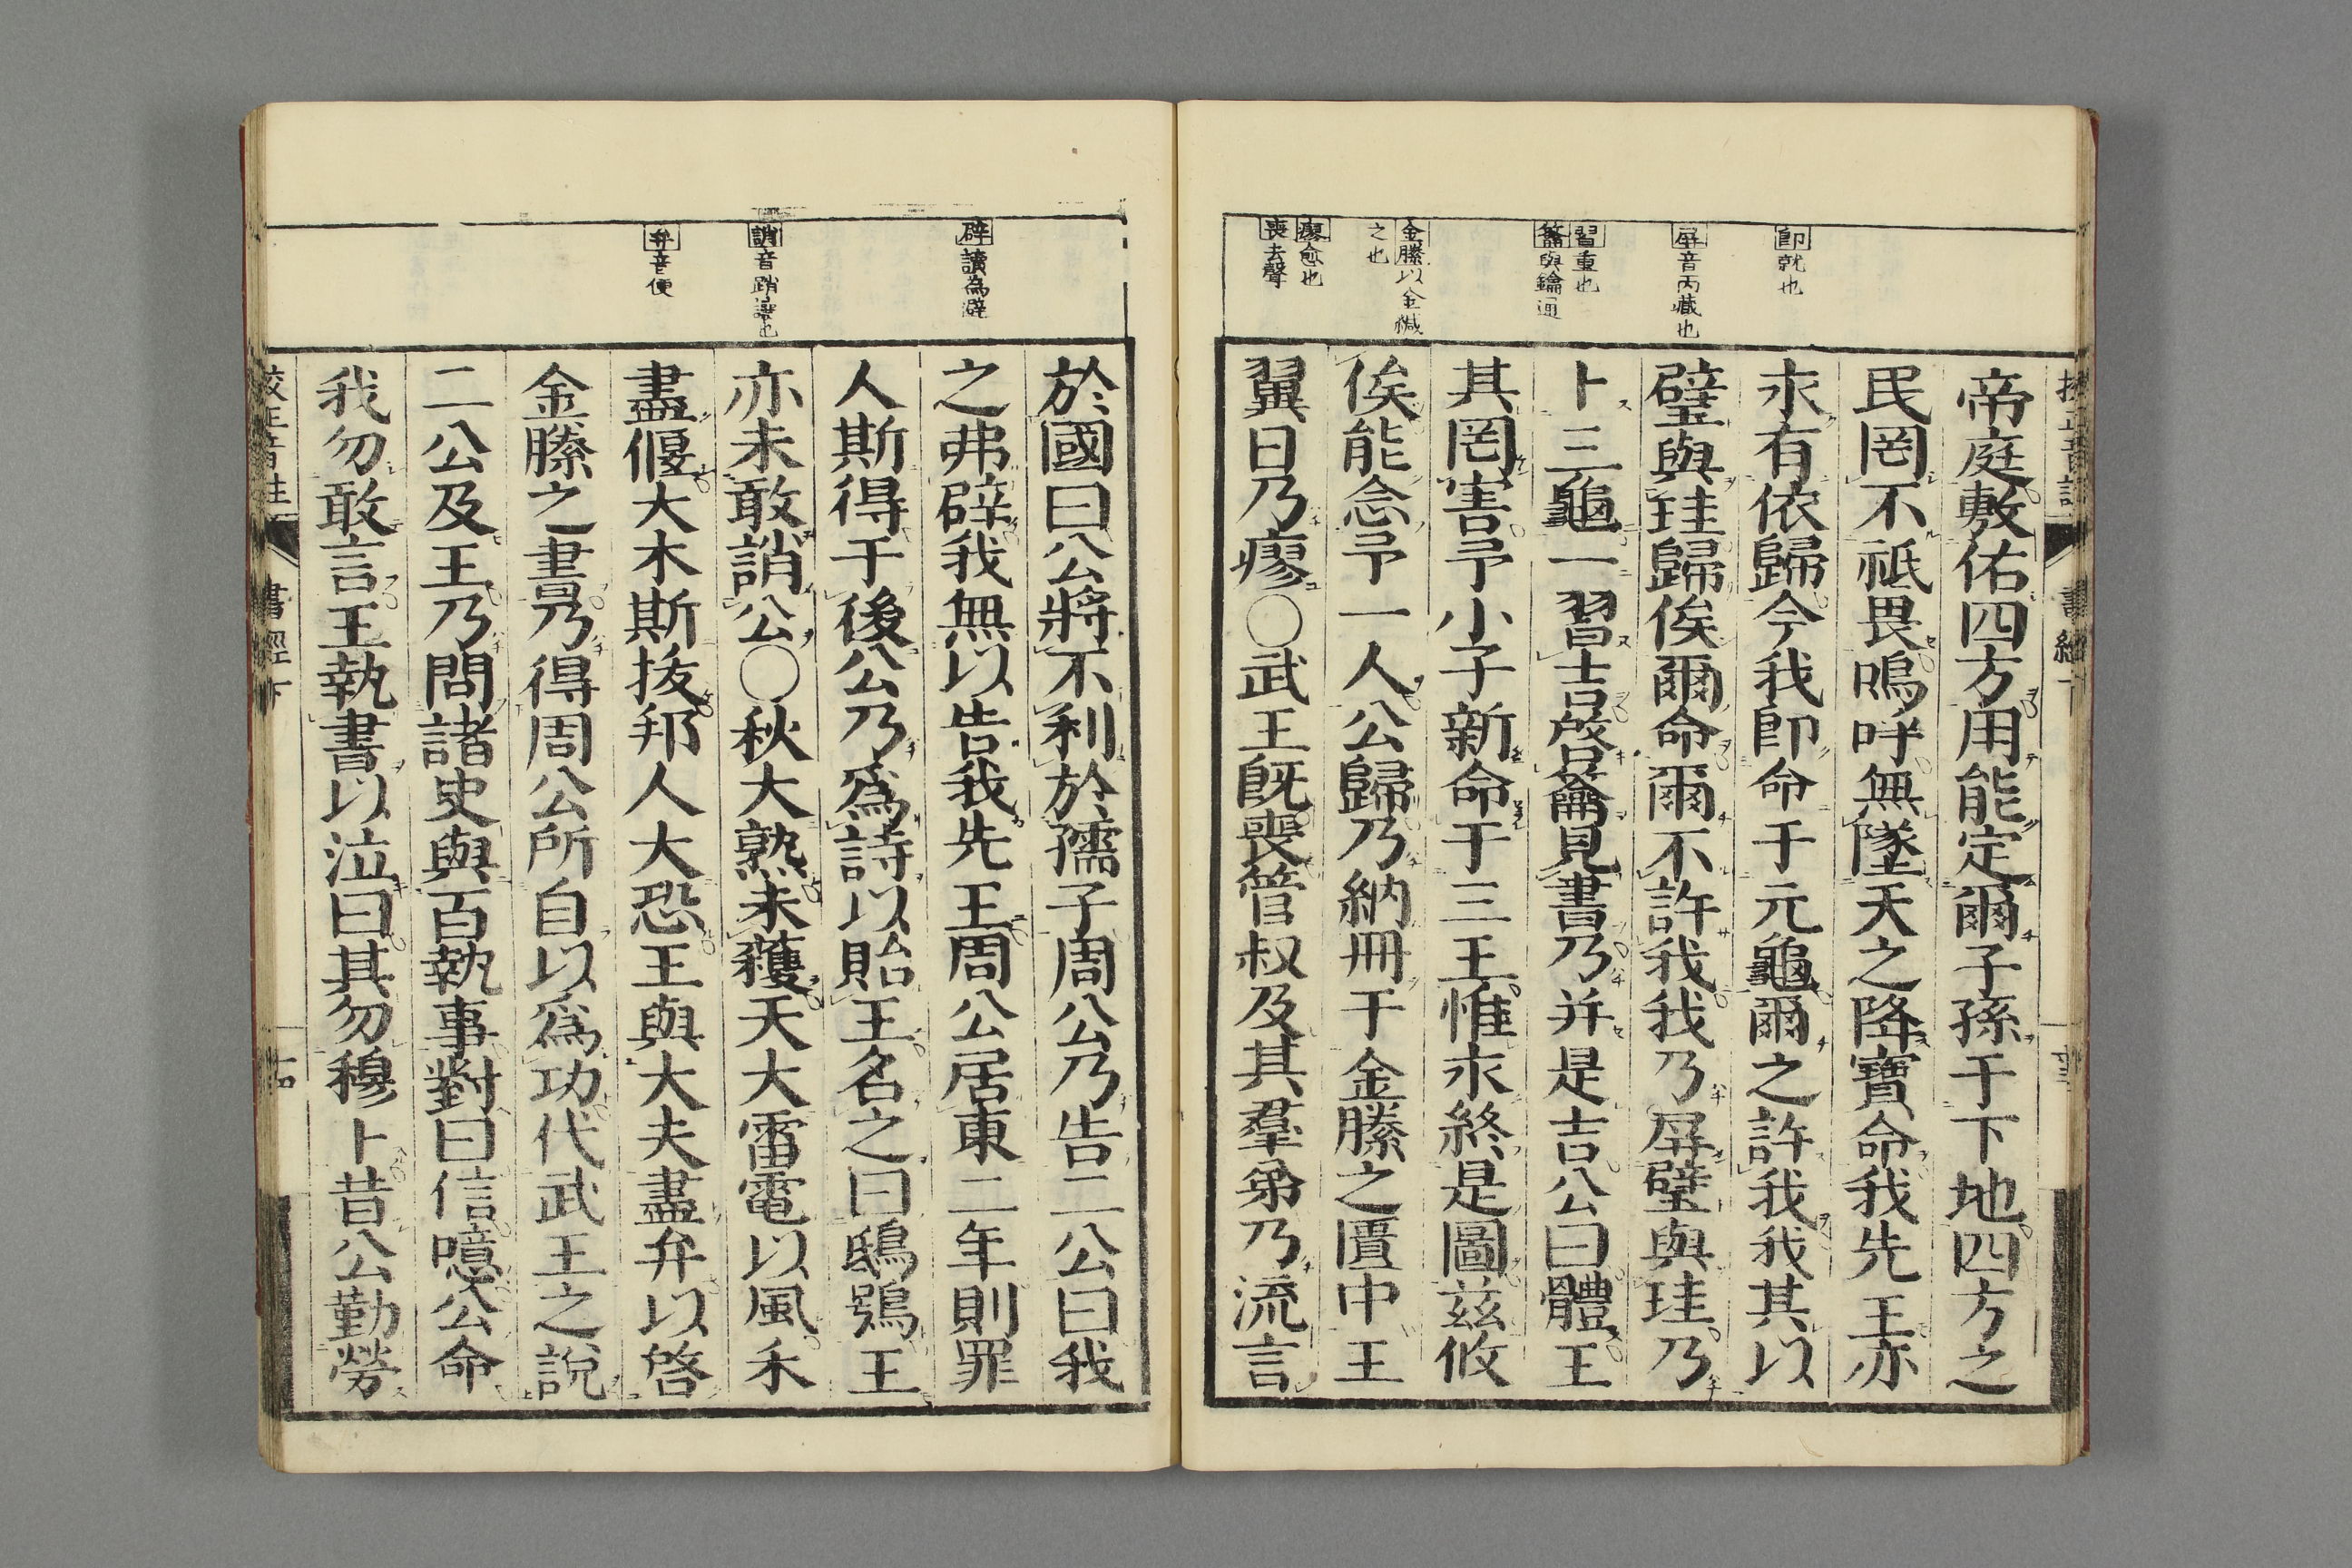 帝庭敷佑四方用能定爾子孫于下地四方之
民罔不祇畏嗚呼無墜天之降寶命我先王亦
永有依歸今我即命于元龜爾之許我我其以
璧與珪歸俟爾命爾不許我我乃屏璧與珪乃
卜三龜一習吉啓籥見書乃并是吉公曰體王
其罔害予小子新命于三王惟永終是圖茲攸
俟能念予一人公歸乃納冊于金縢之匱中王
翼日乃瘳○武王旣喪管叔及其羣弟乃流言
即就也
屏音丙藏也
習重也
籥與鑰通
金縢以金緘
之也
瘳愈也
喪去聲
書經下
於國曰公將不利於孺子周公乃告二公曰我
之弗辟我無以告我先王周公居東二年則罪
人斯得于後公乃爲詩以貽王名之曰鴟鴞王
亦未敢誚公○秋大熟未穫天大雷電以風禾
盡偃大木斯拔邦人大恐王與大夫盡弁以啓
金縢之書乃得周公所自以爲功代武王之說
二公及王乃問諸史與百執事對曰信噫公命
我勿敢言王執書以泣曰其勿穆卜昔公勤勞
辟讀為避
誚音誚讓也
弁音便
校正音註 書經下